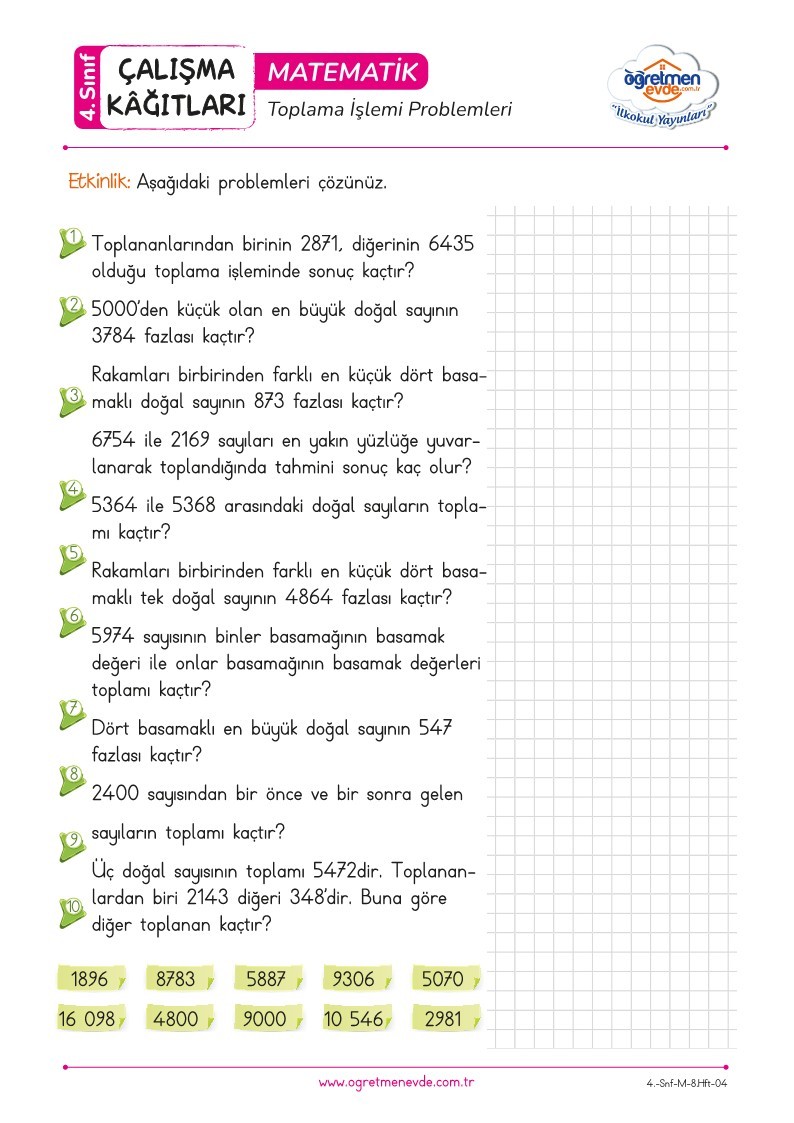 4. Sınıf
ÇALIŞMA
KÂĞITLARI
MATEMATİK
Toplama İşlemi Problemleri
öğretmen
evde.com.tr
“İlkokul Yayınları”
Etkinlik: Aşağıdaki problemleri çözünüz.
1 Toplananlarından birinin 2871, diğerinin 6435
olduğu toplama işleminde sonuç kaçtır?
2 5000’den küçük olan en büyük doğal sayının
3784 fazlası kaçtır?
Rakamları birbirinden farklı en küçük dört basa-
3 maklı doğal sayının 873 fazlası kaçtır?
6754 ile 2169 sayıları en yakın yüzlüğe yuvar-
lanarak toplandığında tahmini sonuç kaç olur?
4
5364 ile 5368 arasındaki doğal sayıların topla-
mı kaçtır?
5
Rakamları birbirinden farklı en küçük dört basa-
maklı tek doğal sayının 4864 fazlası kaçtır?
6
5974 sayısının binler basamağının basamak
değeri ile onlar basamağının basamak değerleri
toplamı kaçtır?
7
Dört basamaklı en büyük doğal sayının 547
fazlası kaçtır?
8
2400 sayısından bir önce ve bir sonra gelen
sayıların toplamı kaçtır?
9
Üç doğal sayısının toplamı 5472dir. Toplanan-
10 lardan biri 2143 diğeri 348’dir. Buna göre
diğer toplanan kaçtır?
1896 8783 5887 9306 5070
16 098 4800 9000 10 546 2981
www.ogretmenevde.com.tr
4.-Snf-M-8.Hft-04